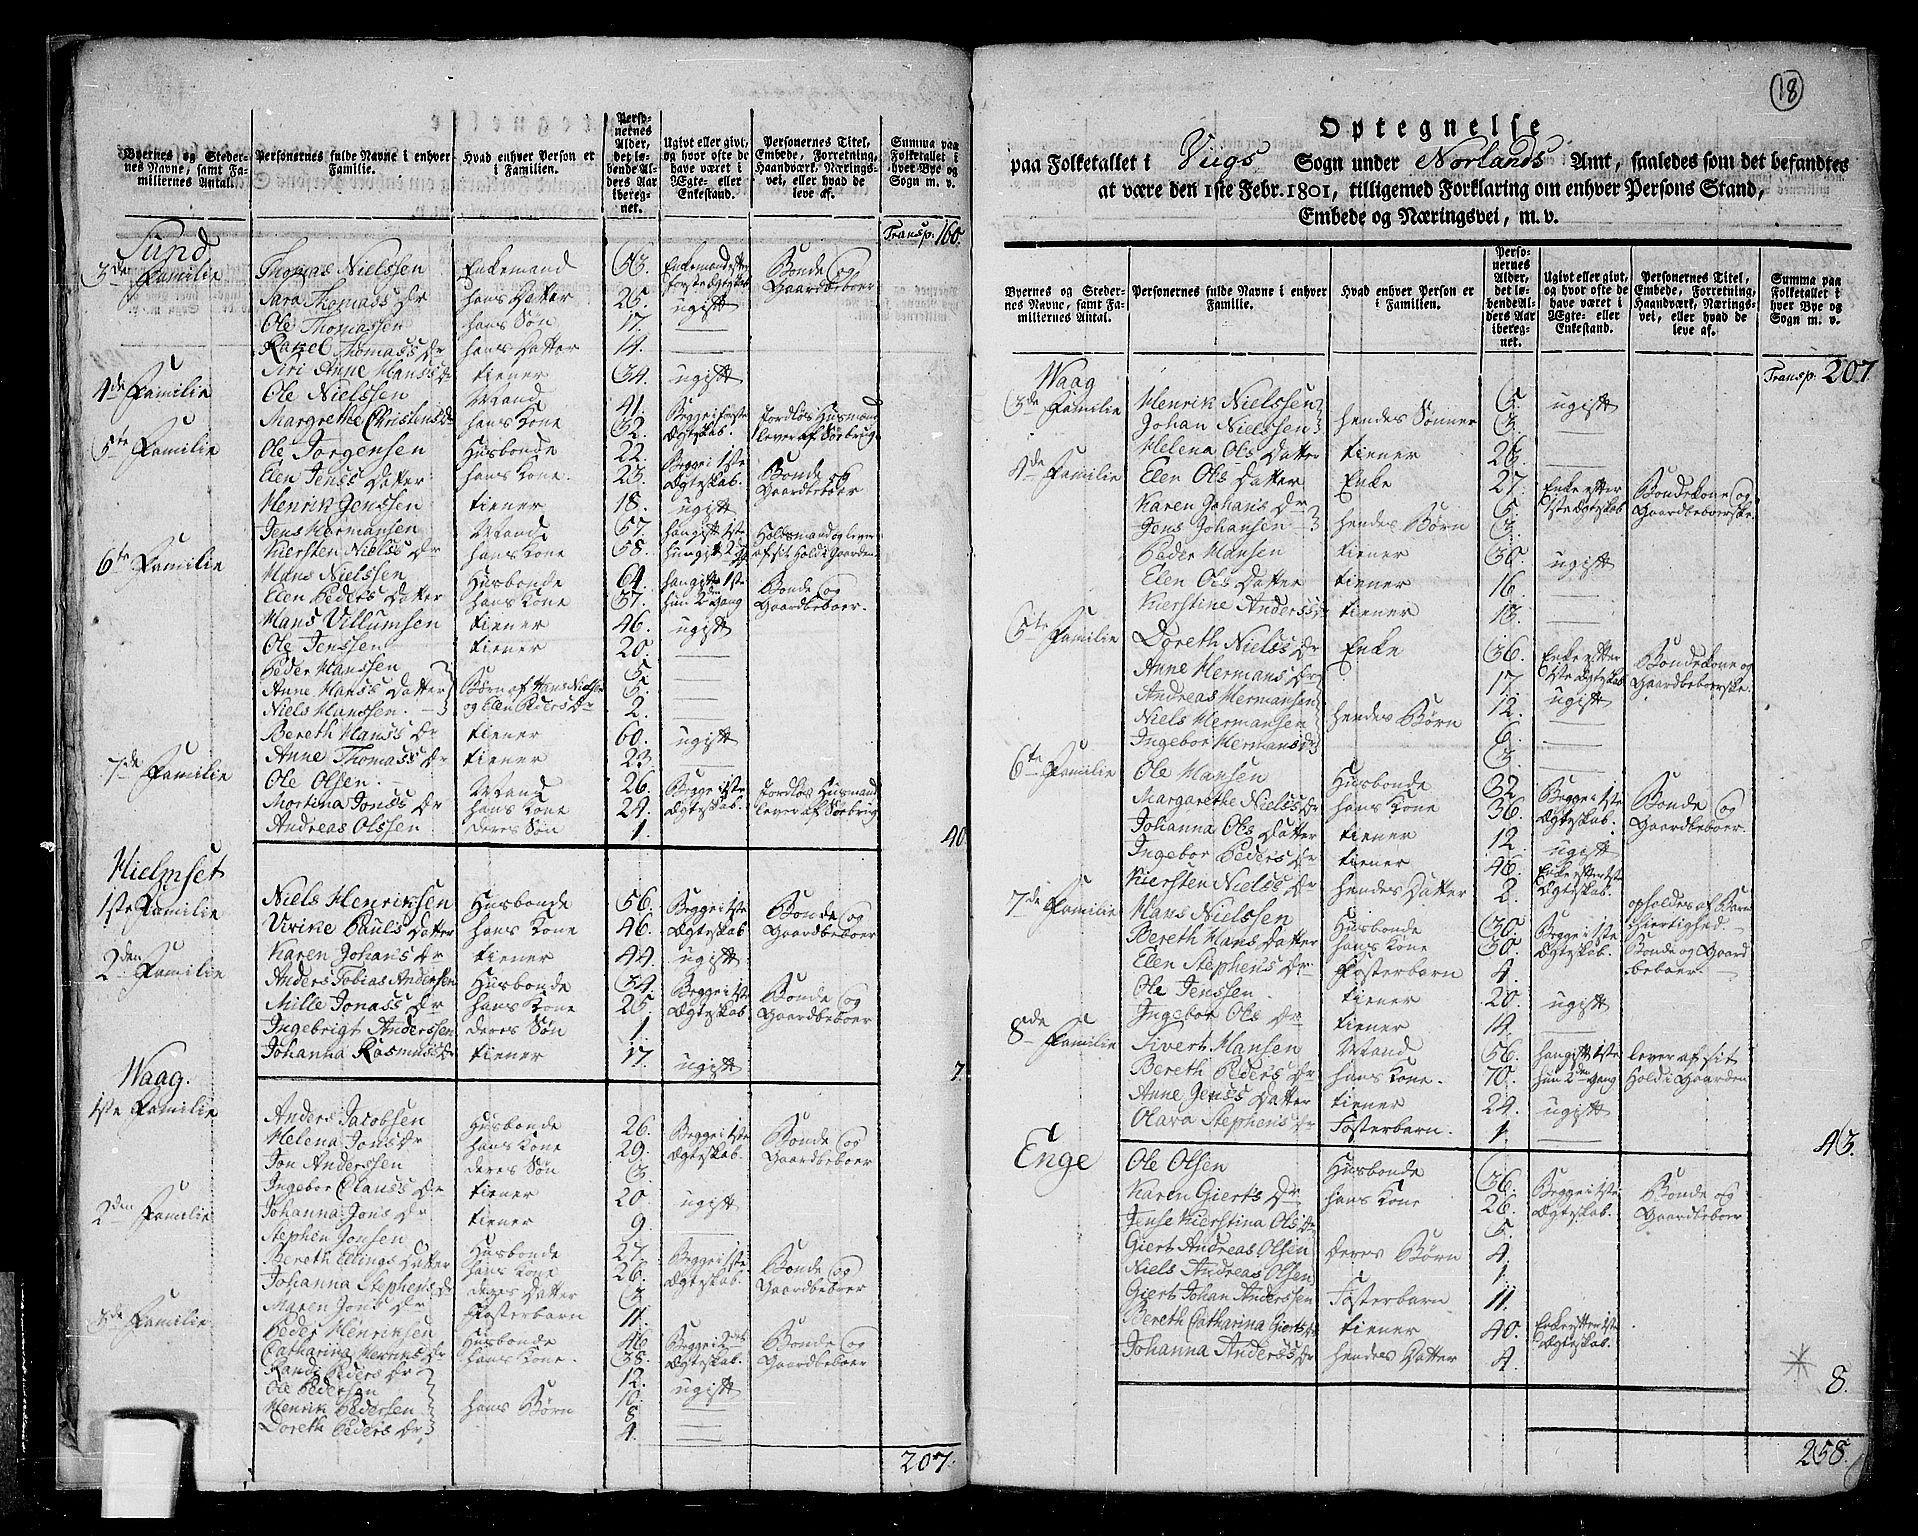 Byernes og Steder-
nes Navne, samt Fa-
miliernes Antal.
Personernes fulde Navne i enhver
Familie.
Hvad enhver Person er
i Familien.
Perso-
nernes
Alder,
det lø-
bende Al-
ders Aar
iberegnet.
Ugivt eller givt,
og hvor ofte de
have været i
Ægte- eller
Enkestand.
Personernes Titel,
Embede, Forretning,
Haandværk, Nærings-
vei, eller hvad de
leve af.
Summa paa
Folketallet i
hver Bye og
Sogn m. v.
Transp. 160.
Sund
3de Familie Thomas Nielssen Enkemand 53. Enkemand efter første Ægteskab Bonde og Gaardbeboer
Sara Thomas Dr hans Datter 25. ugift
Ole Thomassen hans Søn 17. —
Rakel Thomass Dr hans Datter 14. —
Siri Anne Hanss Dr tiener 34. ugift
4de Familie Ole Nielssen Mand 41. Begge i første Ægteskab. Jordløs Husmand lever af Søebrug
Margrethe Christens Dr hans Kone 32.
5te Familie Ole Jørgensen Husbonde 22. Begge i 1ste Ægteskab. Bonde og Gaardbeboer
Elen Jenss Datter hans Kone. 23.
Henrik Jenssen tiener 18. ugift
Jens Hermansen Mand 57. han gift 1ste hun gift 2den Holdsmand og lever af sit Hold i Gaarden
Kiersten Niels Dr hans Kone 58.
6te Familie Hans Nielssen Husbonde 64. han gift 1ste hun 2den Gang Bonde og Gaardbeboer.
Elen Peders Datter hans Kone 37.
Hans Villumsen tiener 46. ugift
Ole Jenssen tiener 20. —
Peder Hanssen 5. —
Anne Hanss Datter Børn af Hans Nielsen 5. —
Niels Hanssen. og Elen Peders Dr 2. —
Bereth Hanss Dr tiener 60. ugift
Anne Thomass Dr tiener 23. —
7de Familie Ole Olsen. Mand 26. Begge i 1ste Ægteskab. Jordløs Husmand lever af Søebrug
Mortina Jonss Dr hans Kone 24.
Andreas Olssen deres Søn 1.
40.
Hielmset
1ste Familie Niels Henriksen Husbonde 56. Begge i 1ste Ægteskab Bonde og Gaardbeboer
Virike Pauls Datter hans Kone 46.
Karen Johans Dr tiener 44. ugift
2den Familie Anders Tobias Andersen Husbonde 34. Begge i 1ste Ægteskab Bonde og Gaardbeboer
Mille Jonass Dr hans Kone 25.
Ingebrigt Anderssen deres Søn 1
Johanna Rasmuss Dr tiener 17. ugift
7.
Waag.
1ste Familie Anders Jacobsen Husbonde 26. Begge i 1ste Ægteskab. Bonde og Gaardbeboer
Helena Jons Dr hans Kone 29.
Jon Anderssen deres Søn 3.
Ingebor Clauss Dr tiener 20 ugift
Johanna Jons Dr tiener 9. —
2den Familie Stephen Jonsen Husbonde 27. Begge i 1ste Ægteskab. Bonde og Gaardbeboer
Bereth Ellings Datter hans Kone 26.
Johanna Stephens Dr deres Datter 3
Maren Jons Dr Fosterbarn 11.
3de Familie Peder Henriksen Husbonde 46 Begge i 2det Ægteskab. Bonde og Gaardbeboer
Catharina Henriks Dr hans Kone. 38.
Randi Peders Dr 12. ugift
Ole Pedersen hans Børn 10. —
Henrik Pedersen 8. —
Doreth Peders Dr. 4. —
207.
18
Optegnelse
paa Folketallet i Viigs Sogn under Norlands Amt, saaledes som det befandtes
at være den 1ste Febr. 1801, tilligemed Forklaring om enhver Persons Stand,
Embede og Næringsvei, m. v.
Byernes og Steder-
nes Navne, samt Fa-
miliernes Antal.
Personernes fulde Navne i enhver
Familie.
Hvad enhver Person er
i Familien.
Perso-
nernes
Alder,
det lø-
bende Al-
ders Aar
ibereg-
net.
Ugivt eller givt,
og hvor ofte de
have været i
Ægte- eller
Enkestand.
Personernes Titel,
Embede, Forretning,
Haandværk, Nærings-
vei, eller hvad de
leve af.
Summa paa
Folketallet i
hver Bye og
Sogn m. v.
Transp. 207
Waag
3de Familie Henrik Nielssen hendes Sønner 5. ugift
Johan Nielssen 3. —
Helena Ols Datter tiener 26. —
4de Familie Elen Ols Datter Enke 27. Enke efter 1ste Ægteskab Bondekone og Gaardbeboerske.
Karen Johans Dr hendes Børn 5.
Jens Johansen 3.
Peder Hansen tiener 30. ugift
Elen Ols Datter tiener 16. —
Kierstine Anderss Dr tiener 18. —
5te Familie Doreth Nielss Dr Enke 36. Enke efter 1ste Ægteskab Bondekone og Gaardbeboerske.
Anne Hermans Dr 17. ugift
Andreas Hermansen hendes Børn 12. —
Niels Hermansen 6. —
Ingebor Hermans Dr 3. —
6te Familie Ole Hansen Husbonde 32. Begge i 1ste Ægteskab. Bonde og Gaardbeboer.
Margarethe Nielss Dr hans Kone 36.
Johanna Ols Datter tiener 12. ugift
Ingebor Peders Dr tiener 46. Enke efter 1ste Ægteskab.
Kiersten Nielss Dr hendes Datter 2. opholdes af Barmhiertighed.
7de Familie Hans Nielssen Husbonde 30. Begge i 1ste Ægteskab. Bonde og Gaardbeboer
Bereth Hans Datter hans Kone 30.
Elen Stephens Dr Fosterbarn 4.
Ole Jenssen. tiener 20. ugift
Ingebor Ols Dr tiener 19. —
8de Familie Sivert Hansen Mand 56. han gift 1ste hun 2den Gang lever af sit Hold i Gaarden
Bereth Peders Dr hans Kone. 70.
Anne Jenss Datter tiener 24. ugift
Olava Stephens Dr Fosterbarn. 1. —
43.
Enge Ole Olsen Husbonde 36. Begge i 1ste Ægteskab. Bonde og Gaardbeboer
Karen Gierts Dr hans Kone 26.
Jense Kierstina Ols Dr 5.
Giert Andreas Olsen deres Børn 4
Niels Andreas Olsen 1.
Giert Johan Anderssen Fosterbarn 11.
Bereth Catharina Gierts Dr tiener 40. Enke efter 1ste Ægteskab.
Johanna Anderss Dr hendes Datter 4.
8.
258.